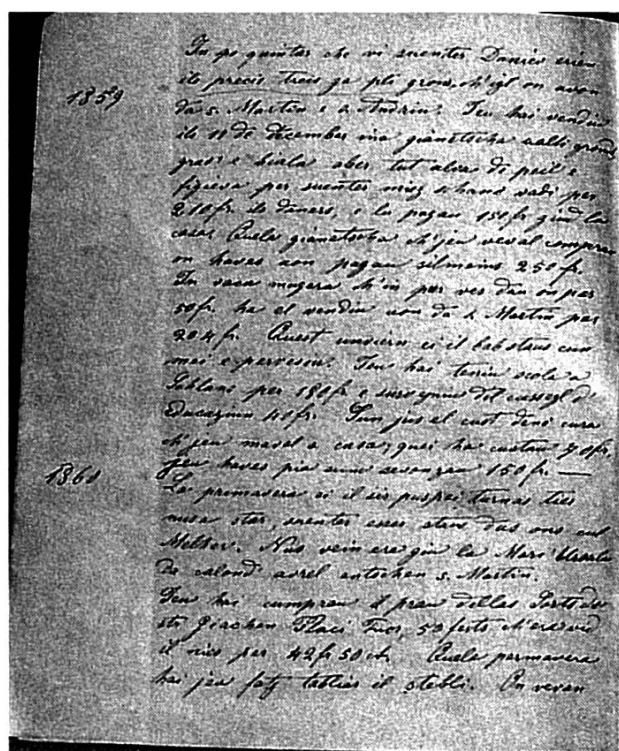 In pe quintas che vi suenter Danies erien
ils precis treis ga plt grons, ch'igl on avon
1859
da s. Martin e s. Andriu. Jeu hai vendiu
ils 11 de december ina gianetscha aulti gronda
grass e biala aber tut alva de peil e
per suenter miez schaner vadi per
210 fr. ils daners, e lu pagau 150 fr giud la
casa. Quela gianetscha ch'jeu veval comprau
on haveva non pagau silmeins 250 fr.
In vaca mugera ch'in pur ves dau on per
50 fr. ha el vendiu uon da s. Martin per
204 fr. Quest unviern ei il bab staus cun
mei e parvesiu. Jeu hai teniu scola a
per 180 fr e survegniu dil cussegl d'
Educaziun 40 fr. Jeu jus el cust deni cura
ch'jeu mavel a casa, quei ha custau 70 fr.
Jeu haves pia aunc avonzau 150 fr. —
1860
La primavera ei il sir puspei turnas tier
nusa star, suenter esser staus dus ons cul
Melher. Nus vein era giu la Mari Ursula
da calond' avrel entschen s. Martin.
Jeu hai cumprau il prau dellas Ports da
sts Giachen Placi 50 ch'era vid
il nies per 42 fr 50 ch. Quela permavera
hai jeu fatg tablier il stebli. On vevan